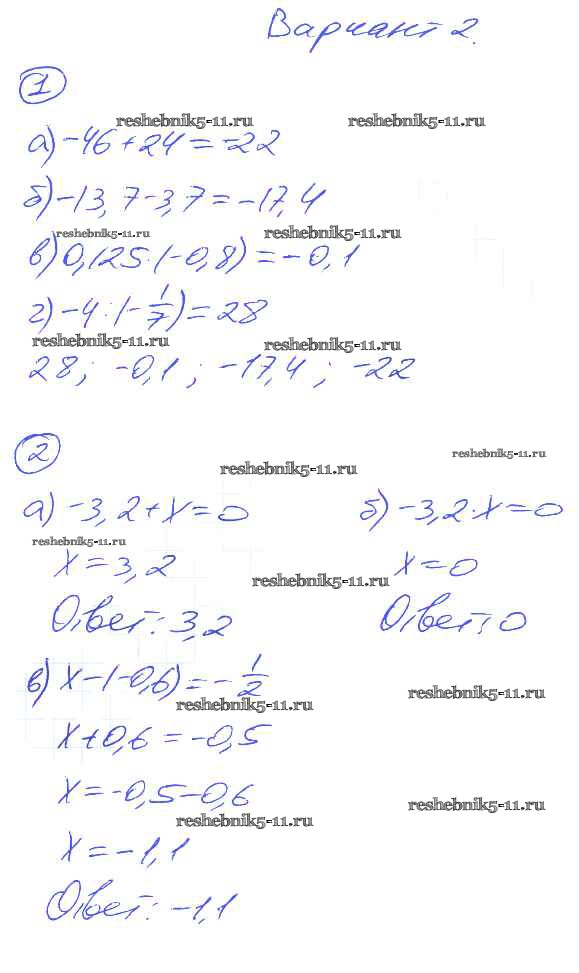 Вариант 2.
1
reshebnik5-11.ru reshebnik5-11.ru
а) -46+24=-22
б) -13,7-3,7=-17,4
reshebnik5-11.ru reshebnik5-11.ru
в) 0,125·(-0,8)=-0,1
г) -4:(-1/7)=28
reshebnik5-11.ru reshebnik5-11.ru
28; -0,1; -17,4; -22
2
reshebnik5-11.ru reshebnik5-11.ru
а) -3,2+x=0 б) -3,2·x=0
reshebnik5-11.ru
x=3,2 x=0
reshebnik5-11.ru
Ответ: 3,2 Ответ: 0
в) x-(-0,6)=-1/2
reshebnik5-11.ru reshebnik5-11.ru
x+0,6=-0,5
x=-0,5-0,6
reshebnik5-11.ru reshebnik5-11.ru
x=-1,1
Ответ: -1,1